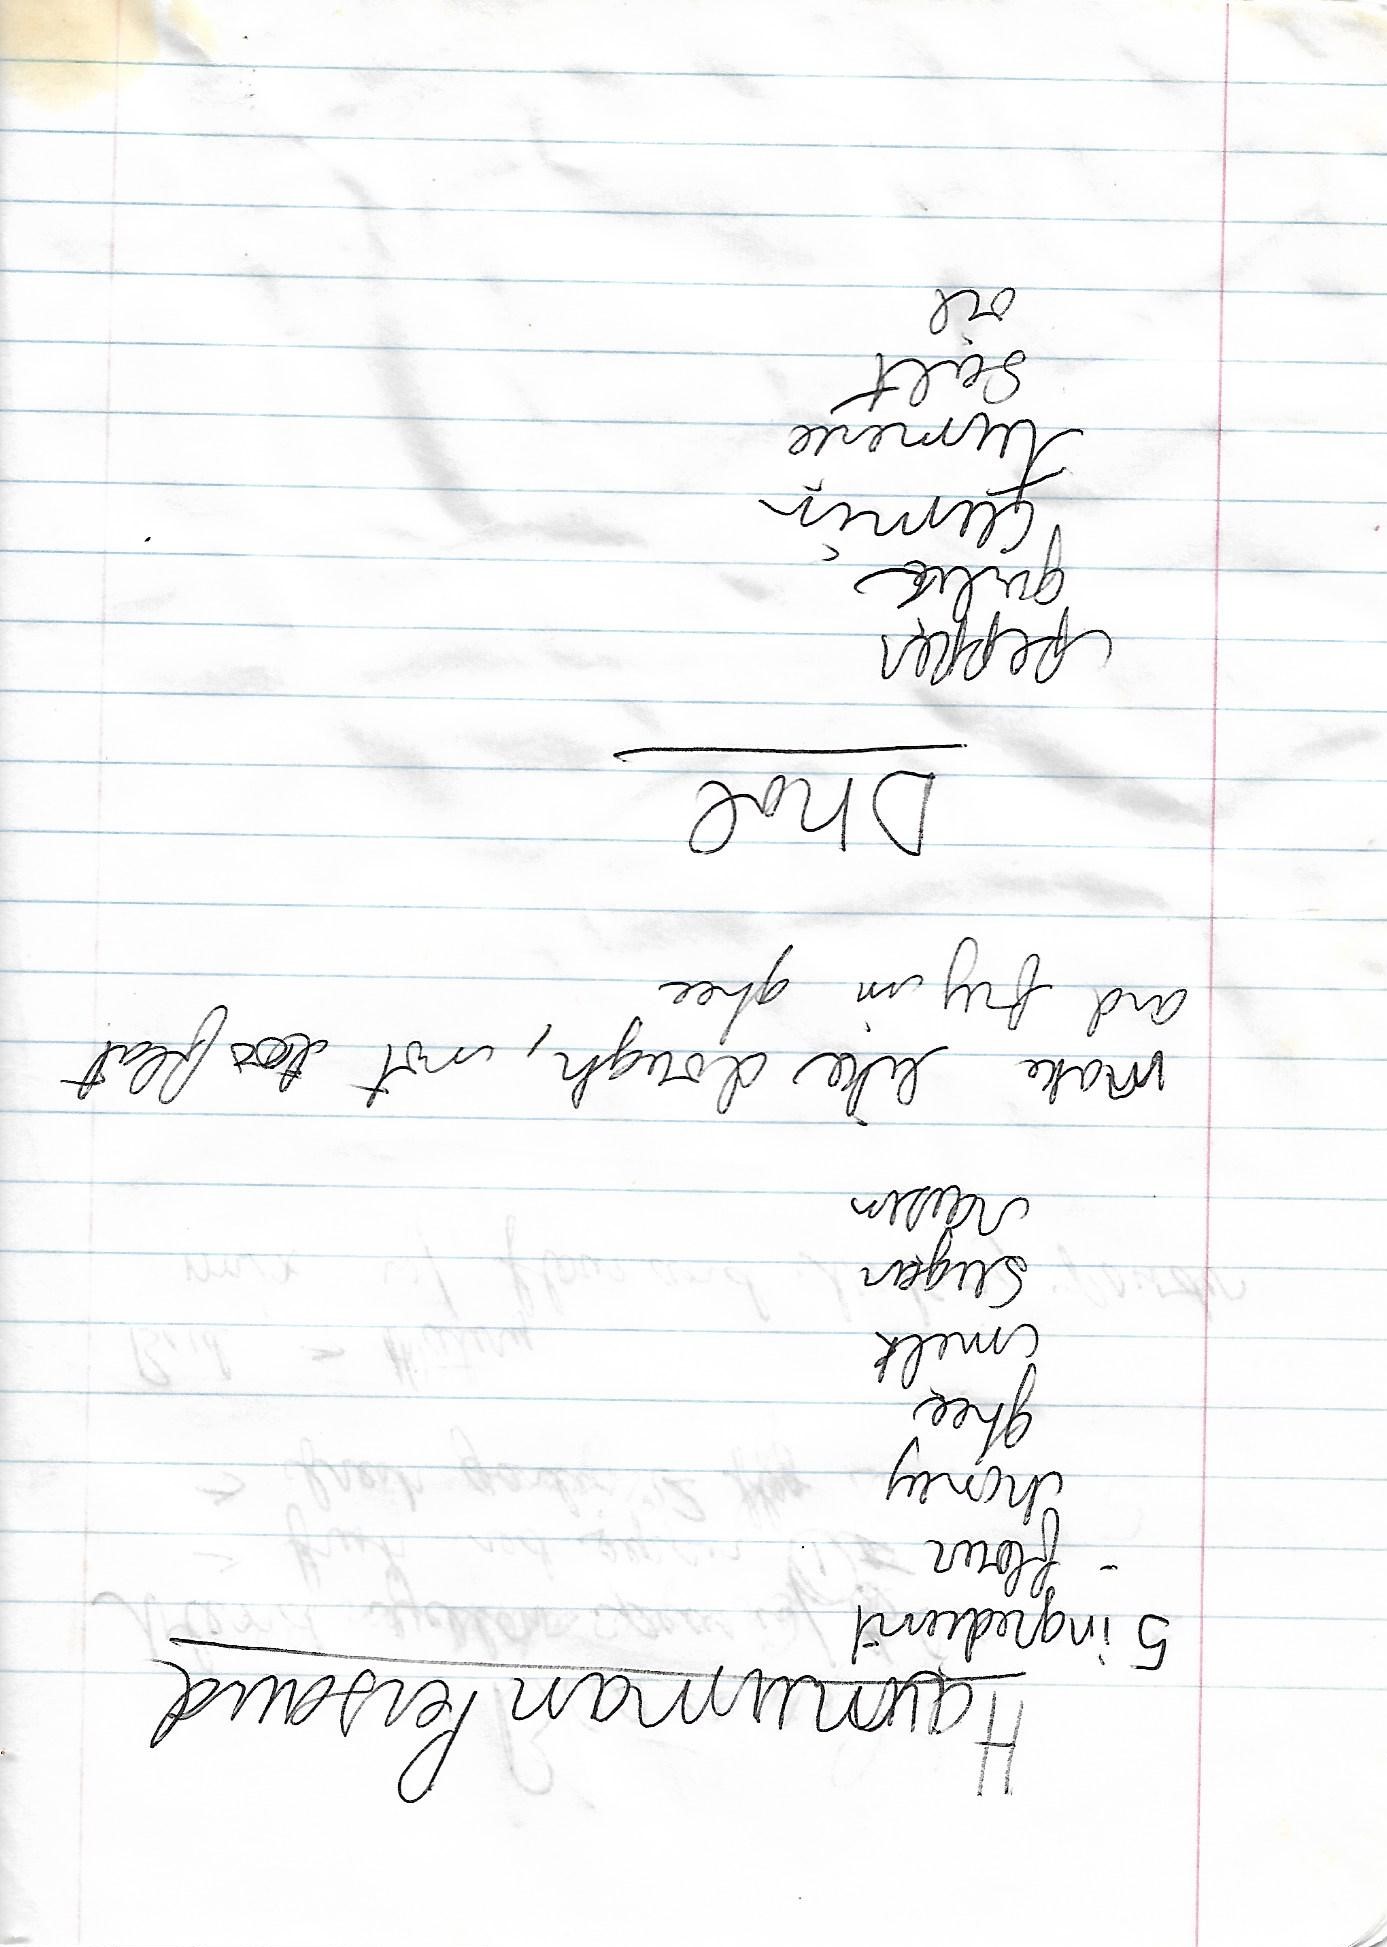 Haunuman Persaud
5 ingredient
- flour
honey
ghee
melk
sugar
raisin
make like dough, not too flat
and fry in ghee
Dhal
pepper
garlic
cumin
tumeric
salt
oil